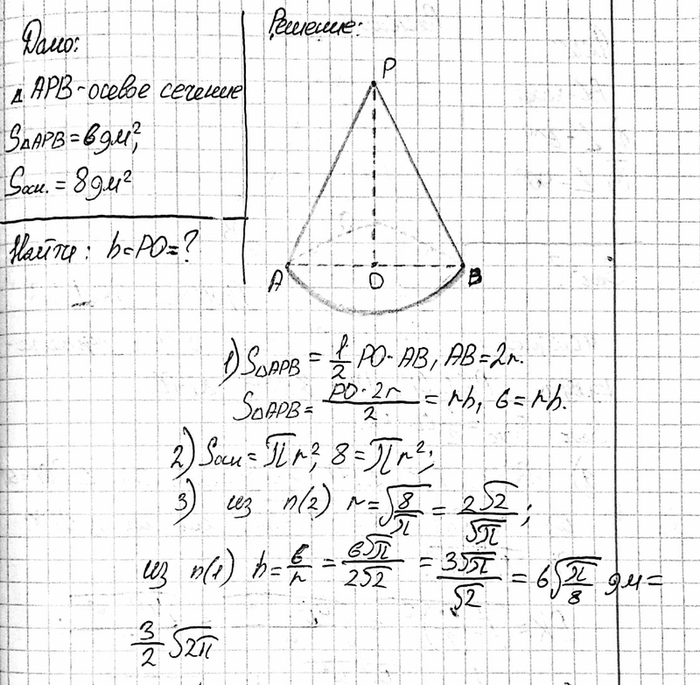 Дано:
△APB-осевое сечение
S△APB = 6дм²,
Sосн. = 8дм²
Найти: h=PO=?
Решение:
P
A
O
B
1) S△APB = 1/2 PO·AB, AB=2r.
S△APB = PO·2r/2 = rh, 6=rh.
2) Sосн = πr², 8=πr²;
3) из п(2) r=√(8/π) = 2√2/√π;
из п(1) h=6/r = 6√π/2√2 = 3√π/√2 = 6√(π/8) дм =
3/2 √2π